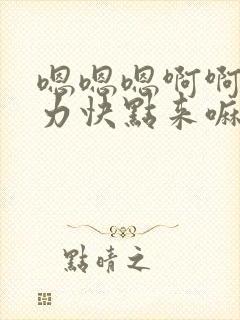 嗯嗯嗯啊啊
力快點来嘛
點晴之